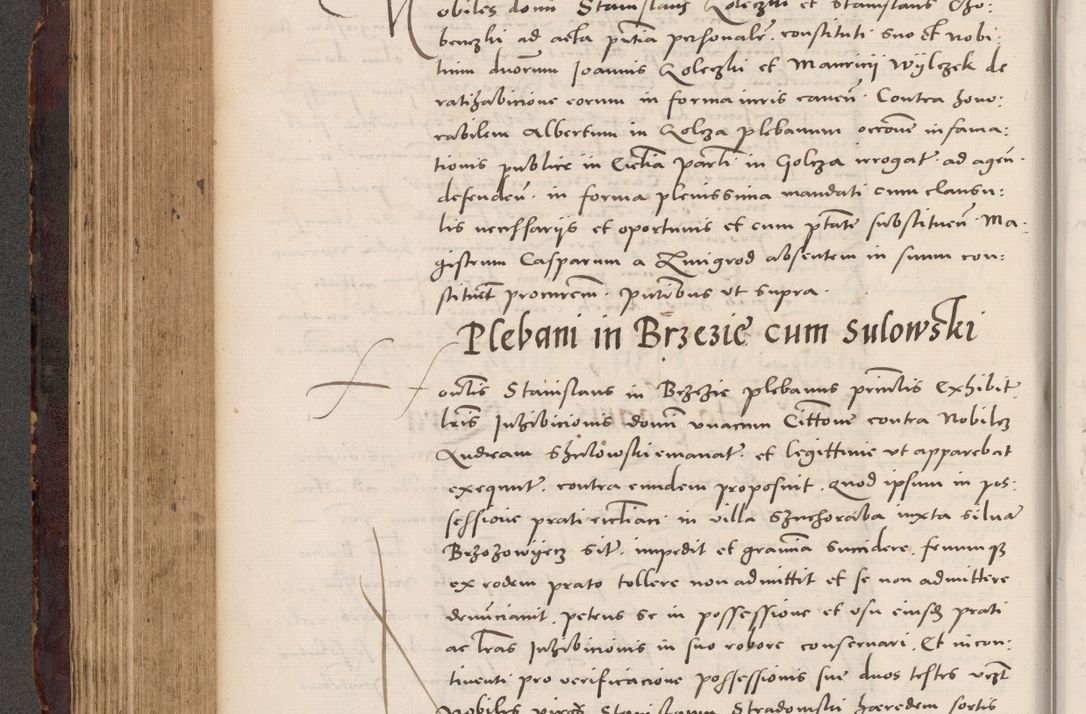 obiles domi Stanislaus Goleczki et Stanislaus Cho:
benczki ad acta pntia personale. constituti suo et Nobi:
lium duorum Joannis Goleczki et Mauricij Wylczek de
ratihabicione eorum in forma iuris caven. Contra hono:
rabilem Albertum in Golcza plebanum occone infama:
tionis publice in Ecclia parli in Golcza irrogat. ad agen.
defenden. in forma plenissima mandati cum clausu:
lis necessarijs et oportunis et cum ptate substituen. Ma:
gistrum Casparum a Zmigrod absentem in suum con:
stituit procurem. pntibus ut supra.
Plebani in Brzezie cum Sulowski
onblis Stanislaus in Brzezie plebanus principlis Exhibit
lris Inhibicionis domi unacum Cittone contra Nobilem
Andream Shulowski emanat. et legittime ut apparebat
exequut. contra eundem proposuit. Quod ipsum in pos:
sessione prati ecclian. in villa Szuchoraba iuxta silua
Brzozowijecz sit. impedit et gravia succidere. fenumq
ex eodem prato tollere non admittit et se non admittere
denunciavit. petens se in possessione et usu eiusd prati
ac lras Inhibicionis in suo robore conservari. Et incon:
tinenti pro verificacione possessionis sue duos testes vczt
Nobiles viros Stanislaum Stradomski haeredem sortis